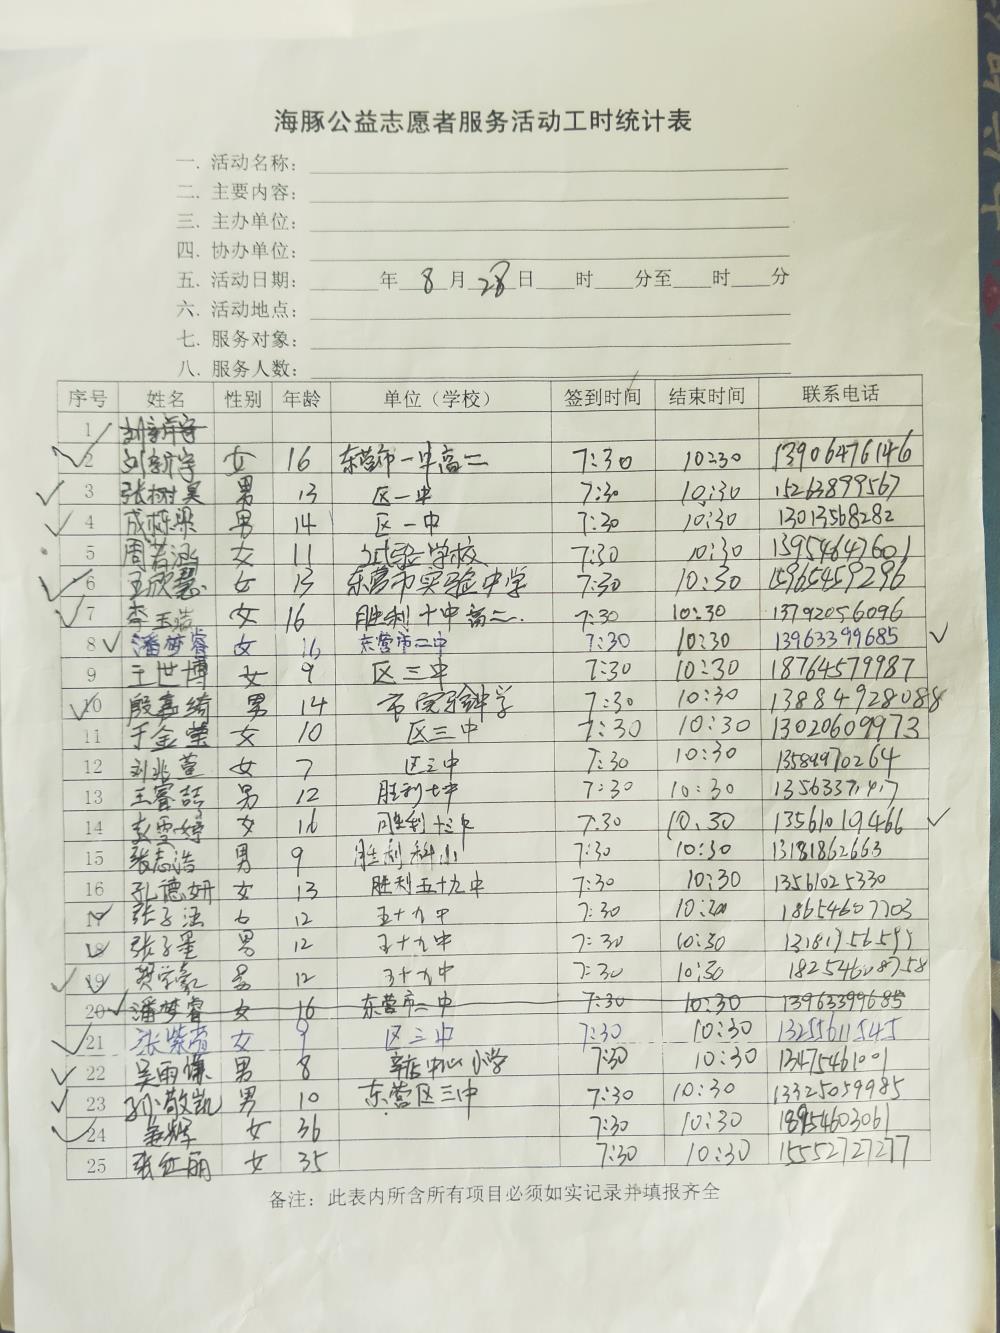 海豚公益志愿者服务活动工时统计表
一. 活动名称:
二. 主要内容:
三. 主办单位:
四. 协办单位:
五. 活动日期: 年 8 月 28 日 时 分至 时 分
六. 活动地点:
七. 服务对象:
八. 服务人数:
序号 姓名 性别 年龄 单位（学校） 签到时间 结束时间 联系电话
1
2 刘新宇 女 16 东营市一中高二 7:30 10:30 13906476146
3 张树昊 男 13 区一中 7:30 10:30 15263899567
4 成栎梁 男 14 区一中 7:30 10:30 13013568282
5 周若涵 女 11 试验学校 7:30 10:30 13954647601
6 王欣慧 女 13 东营市实验中学 7:30 10:30 15965459296
7 李玉 女 16 胜利十中高二. 7:30 10:30 13792056096
8 潘梦睿 女 16 东营市二中 7:30 10:30 13963399685
9 王世博 女 9 区三中 7:30 10:30 18764579987
10 殷嘉绮 男 14 市实验中学 7:30 10:30 13884928088
11 于金莹 女 10 区三中 7:30 10:30 13020609973
12 刘兆萱 女 7 区三中 7:30 10:30 13589970264
13 王睿喆 男 12 胜利七中 7:30 10:30
14 雪婷 女 16 胜利十三中 7:30 10:30 13561019466
15 张志浩 男 9 胜利科小 7:30 10:30 13181862663
16 孔德妍 女 13 胜利五十九中 7:30 10:30 13561025330
17 张子涵 女 12 五十九中 7:30 10:30 18654607703
18 张子墨 男 12 五十九中 7:30 10:30
19 男 12 五十九中 7:30 10:30 18254608758
20 潘梦睿 女 16 东营市二中 7:30 10:30 13963399685
21 张紫萱 女 9 区三中 7:30 10:30 13255611545
22 吴雨 男 8 辛店中心小学 7:30 10:30 13475461001
23 孙敬凯 男 10 东营区三中 7:30 10:30 13325059985
24 姜辉 女 36 7:30 10:30 18954603061
25 张红丽 女 35 7:30 10:30 15552727277
备注：此表内所含所有项目必须如实记录并填报齐全